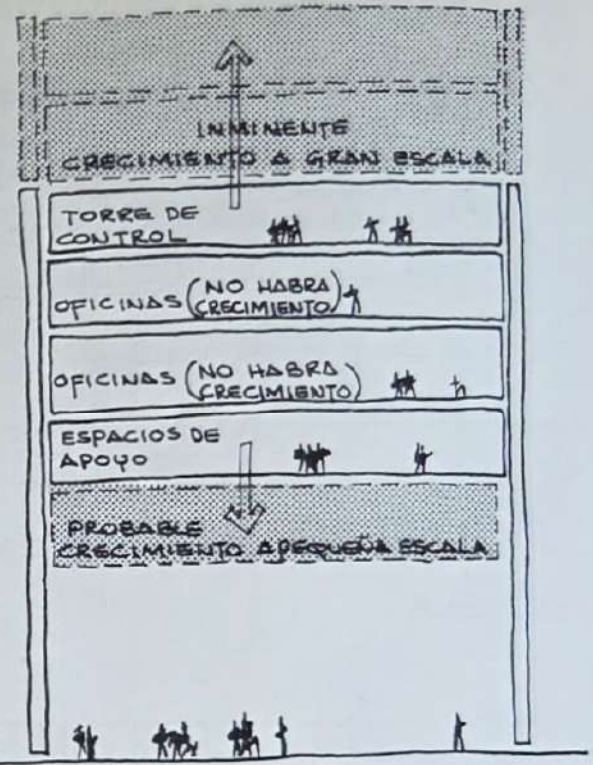 INMINENTE
CRECIMIENTO A GRAN ESCALA
TORRE DE
CONTROL
OFICINAS (NO HABRA
CRECIMIENTO)
OFICINAS (NO HABRA
CRECIMIENTO)
ESPACIOS DE
APOYO
PROBABLE
CRECIMIENTO A PEQUEÑA ESCALA